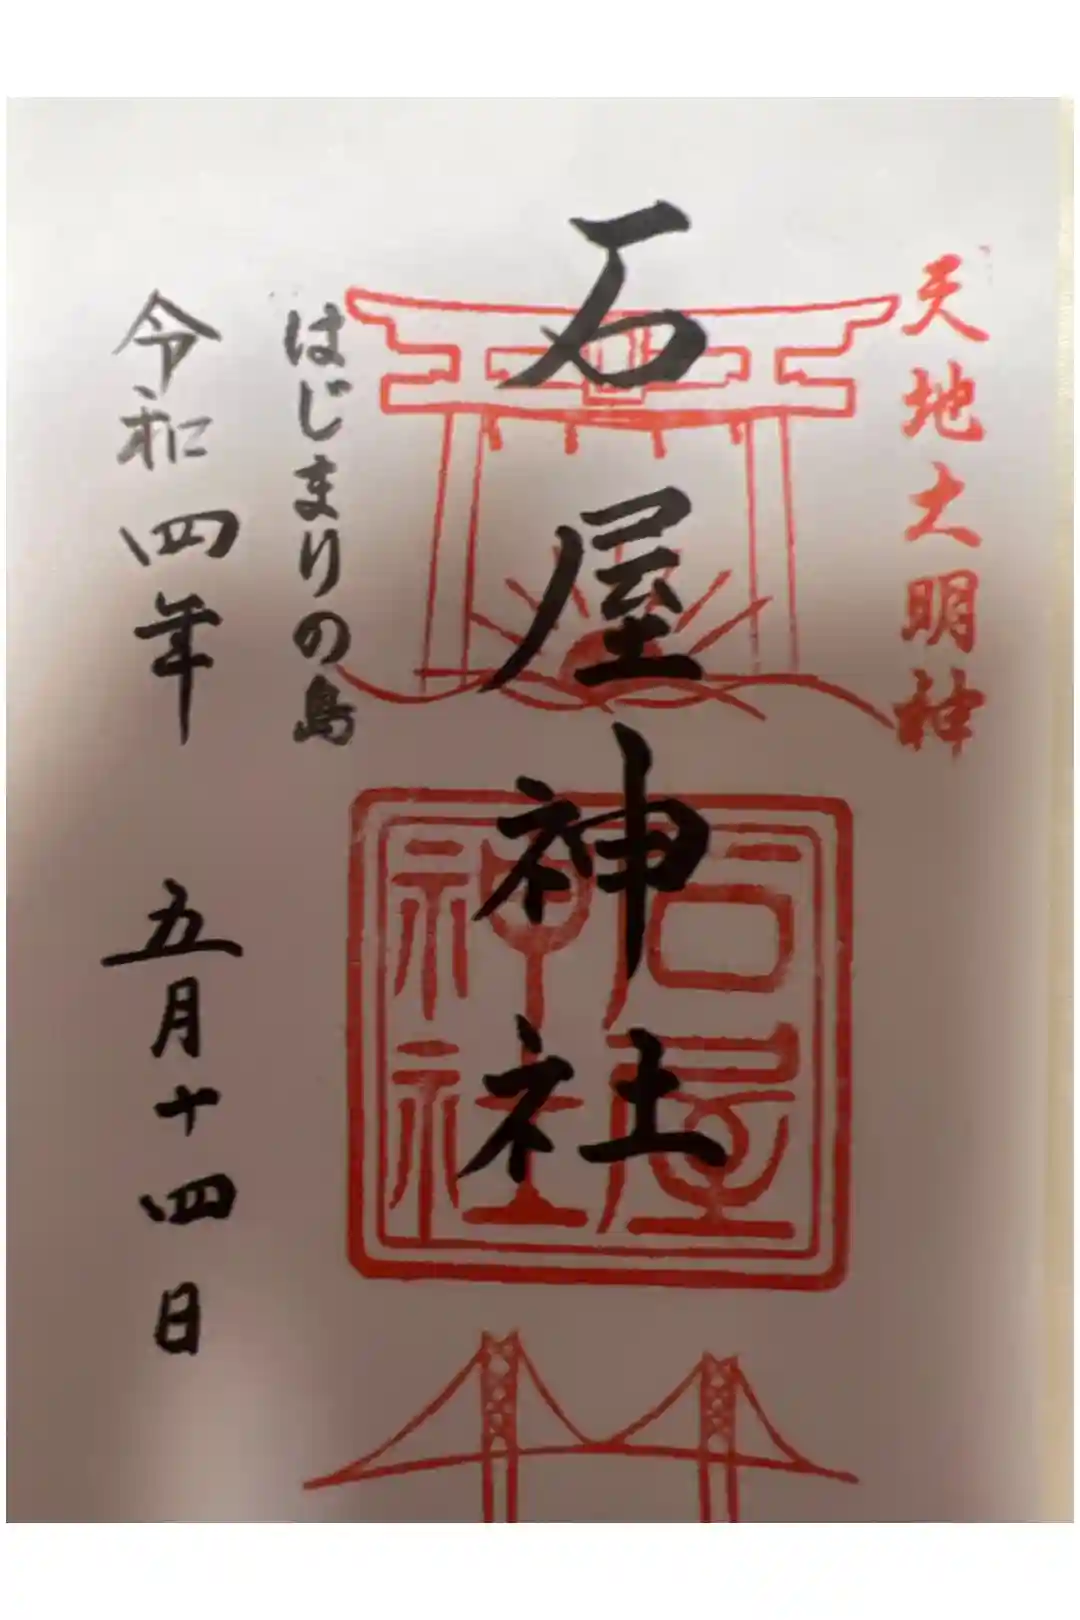 天地大明神
石屋神社
石屋
神社
はじまりの島
令和四年 五月十四日